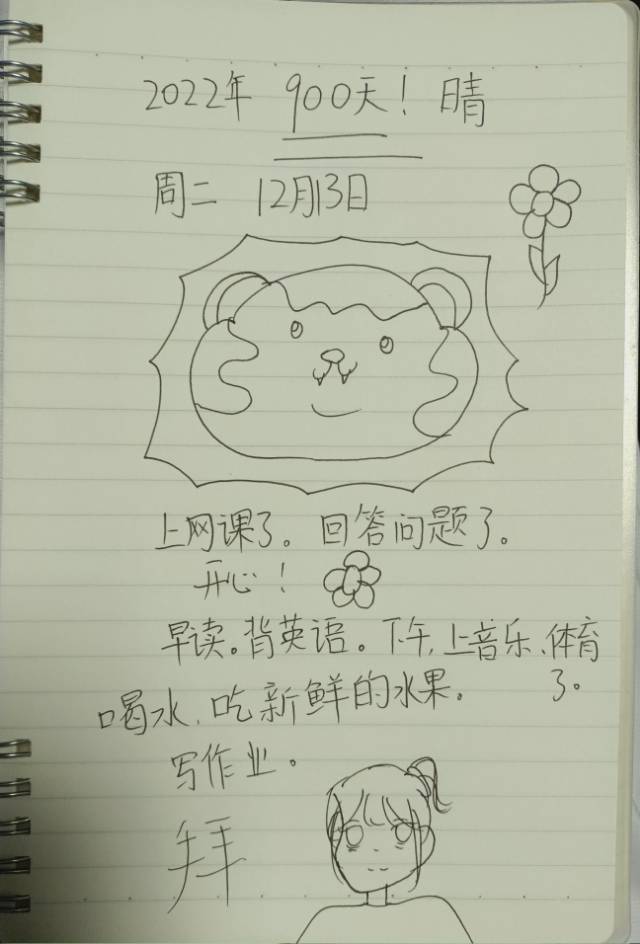 2022年 900天! 晴
周二 12月13日
上网课了。回答问题了。
开心!
早读。背英语。下午,上音乐、体育
了。
喝水,吃新鲜的水果。
写作业。
拜